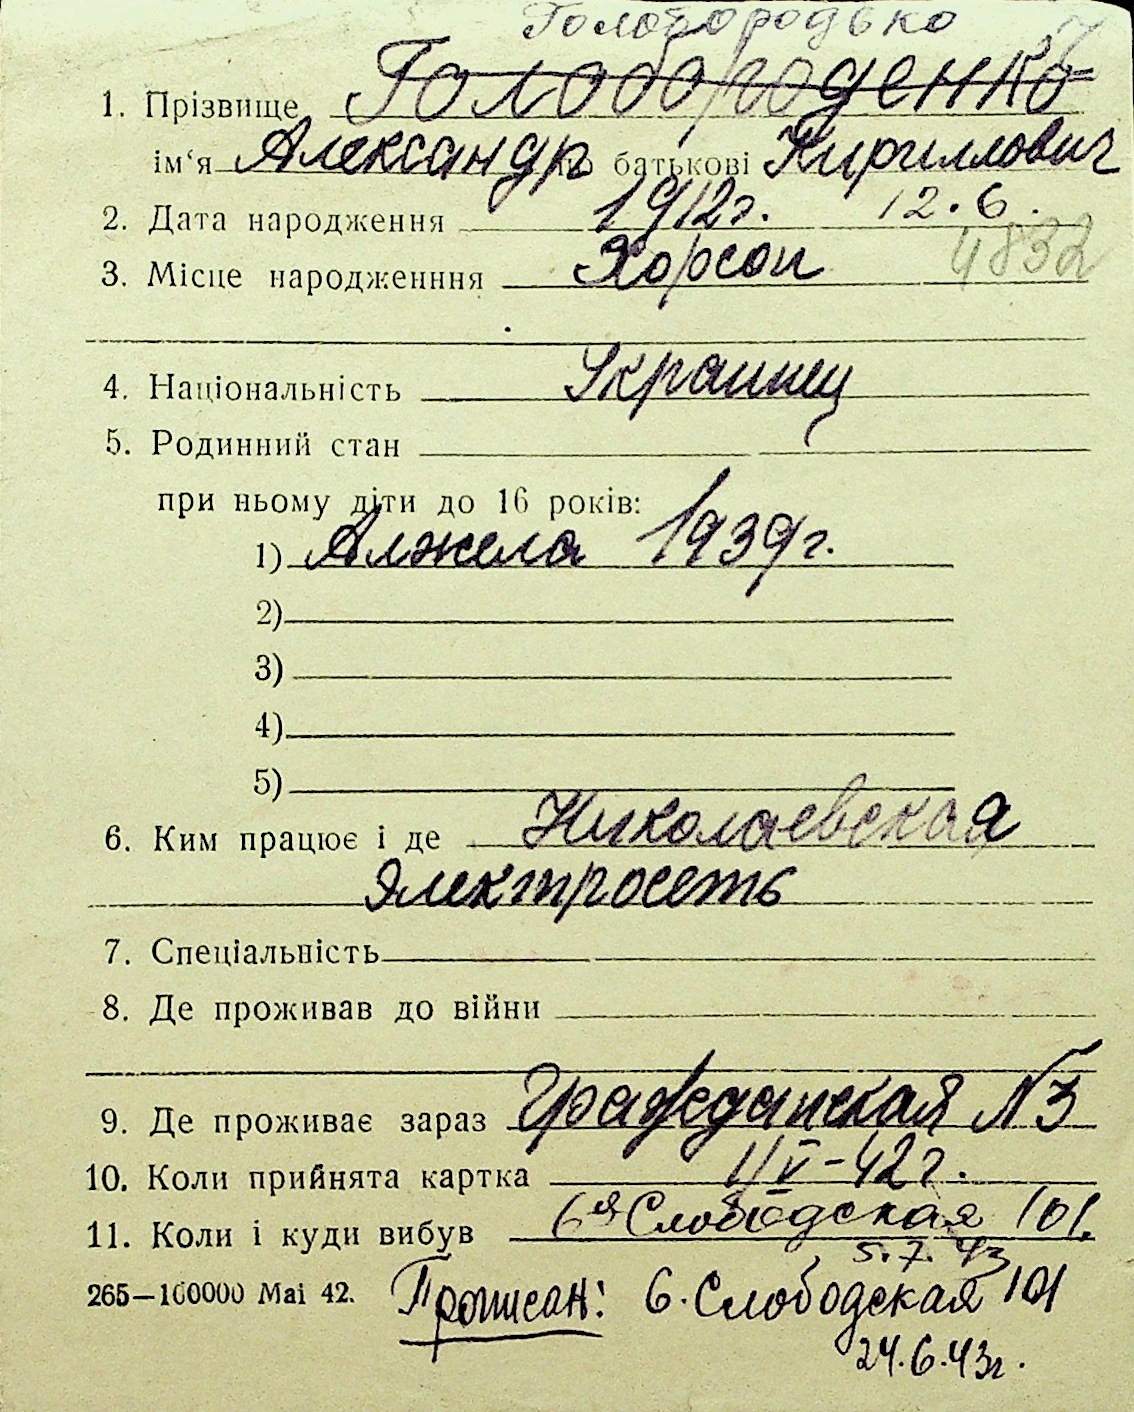 Голобородько
1. Прізвище Голобороденко
ім‘я Александр по батькові Кириллович
2. Дата народження 1912г. 12.6.
3. Місце народженння Хорсон 4832
4. Національність Украинец
5. Родинний стан
при ньому діти до 16 років:
1) Алжела 1939г.
2)
3)
4)
5)
6. Ким працює і де Николаевская
Электросеть
7. Спеціальність
8. Де проживав до війни
9. Де проживає зараз Гражданская №3
10. Коли прийнята картка V-42г.
11. Коли і куди вибув 6ая Слободская 101.
5.7.43
265—100000 Mai 42. Прописан: 6. Слободская 101
24.6.43г.